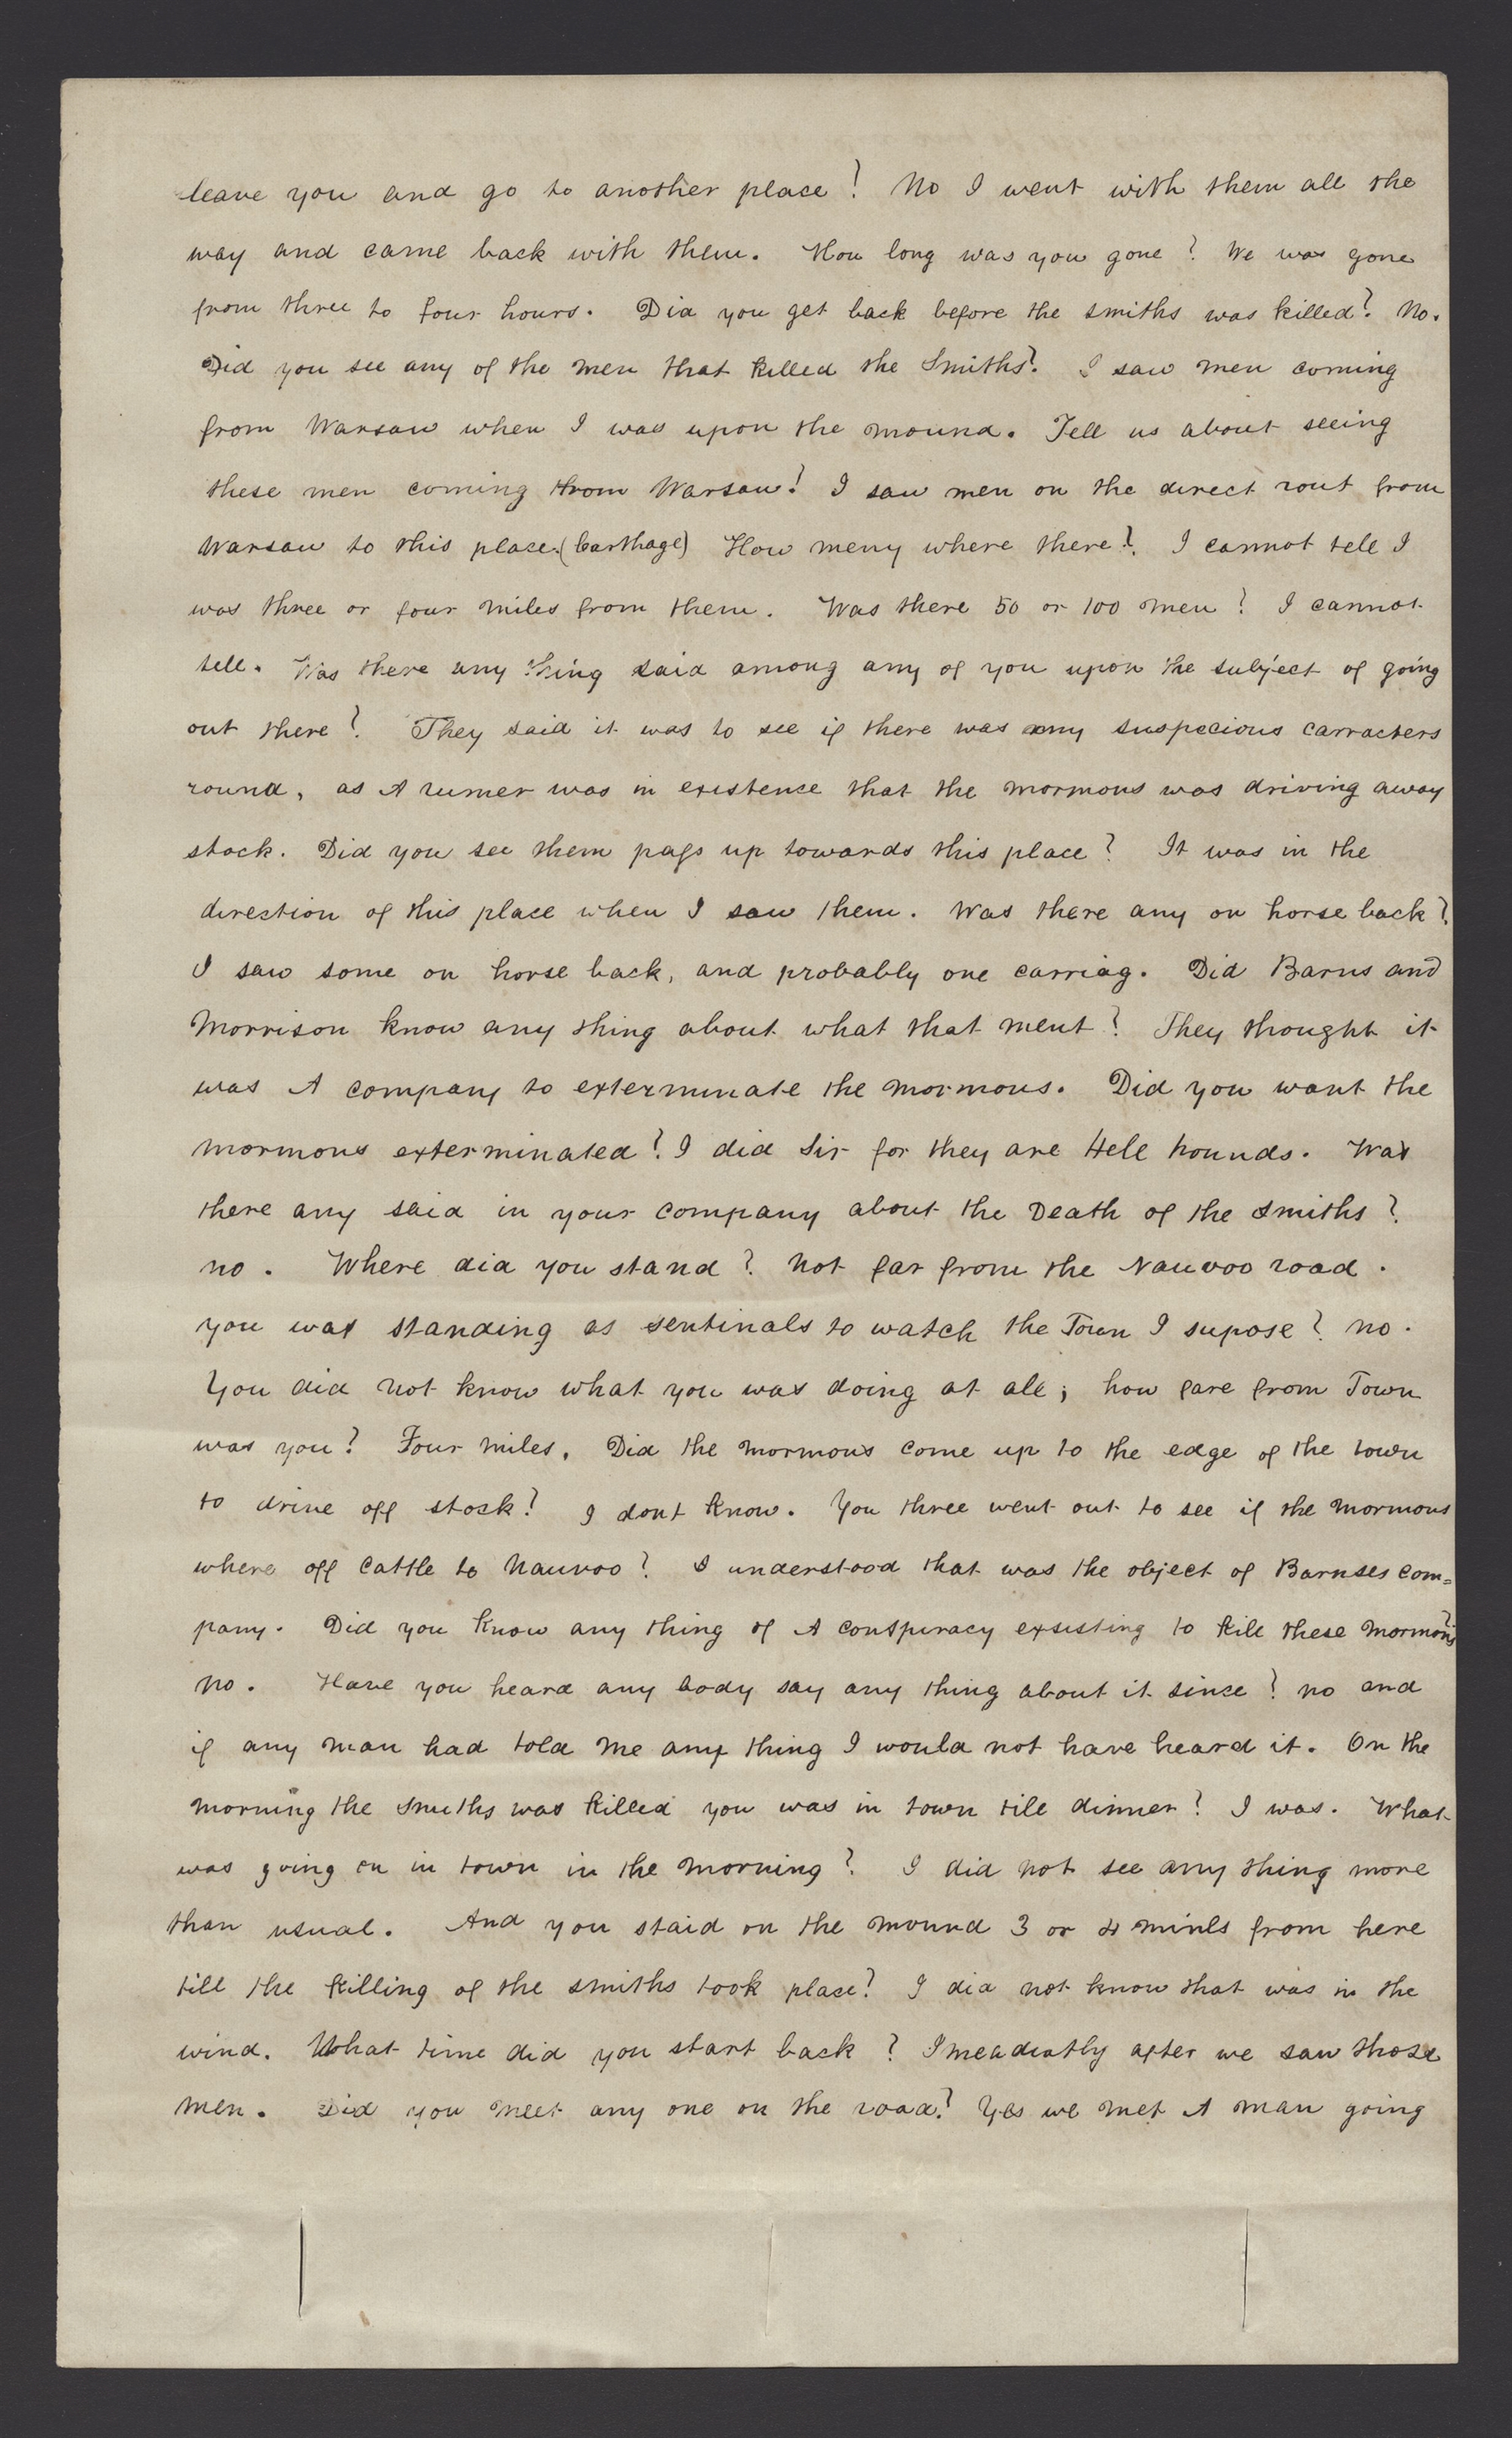 leave you and go to another place? No I went with them all the
way and came back with them. How long was you gone? We was gone
from three to four hours. Did you get back before the smiths was killed? No.
Did you see any of the men that killed the Smiths? I saw men coming
from Warsaw when I was upon the mound. Tell us about seeing
these men coming from Warsaw! I saw men on the direct rout from
Warsaw to this place. (Carthage) How meny where there? I cannot tell I
was three or four miles from them. Was there 50 or 100 men? I cannot
tell. Was there any thing said among any of you upon the subject of going
out there? They said it was to see if there was any suspecious carracters
round, as A rumer was in existence that the mormons was driving away
stock. Did you see them pass up towards this place? It was in the
direction of this place when I saw them. Was there any on horse back?
I saw some on horse back, and probably one carriag. Did Barns and
Morrison know any thing about what that ment? They thought it
was A company to exterminate the mormons. Did you want the
mormons exterminated? I did Sir for they are Hell hounds. Was
there any said in your company about the Death of the Smiths?
no. Where did you stand? Not far from the Nauvoo road.
you was standing as sentinals to watch the Town I supose? no.
You did not know what you was doing at all; how fare from Town
was you? Four miles. Did the mormons come up to the edge of the town
to drive off stock? I dont know. You three went out to see if the mormons
where off cattle to Nauvoo? I understood that was the object of Barnses com=
pany. Did you know any thing of A conspiracy exsisting to kill these mormons?
no. Have you heard any body say any thing about it since? no and
if any man had told me any thing I would not have heard it. On the
morning the smiths was killed you was in town till dinner? I was. What
was going on in town in the morning? I did not see any thing more
than usual. And you staid on the mound 3 or 4 minls from here
till the killing of the smiths took place? I did not know that was in the
wind. What time did you start back? Imeadiatly after we saw those
men. Did you meet any one on the road? Yes we met A man going